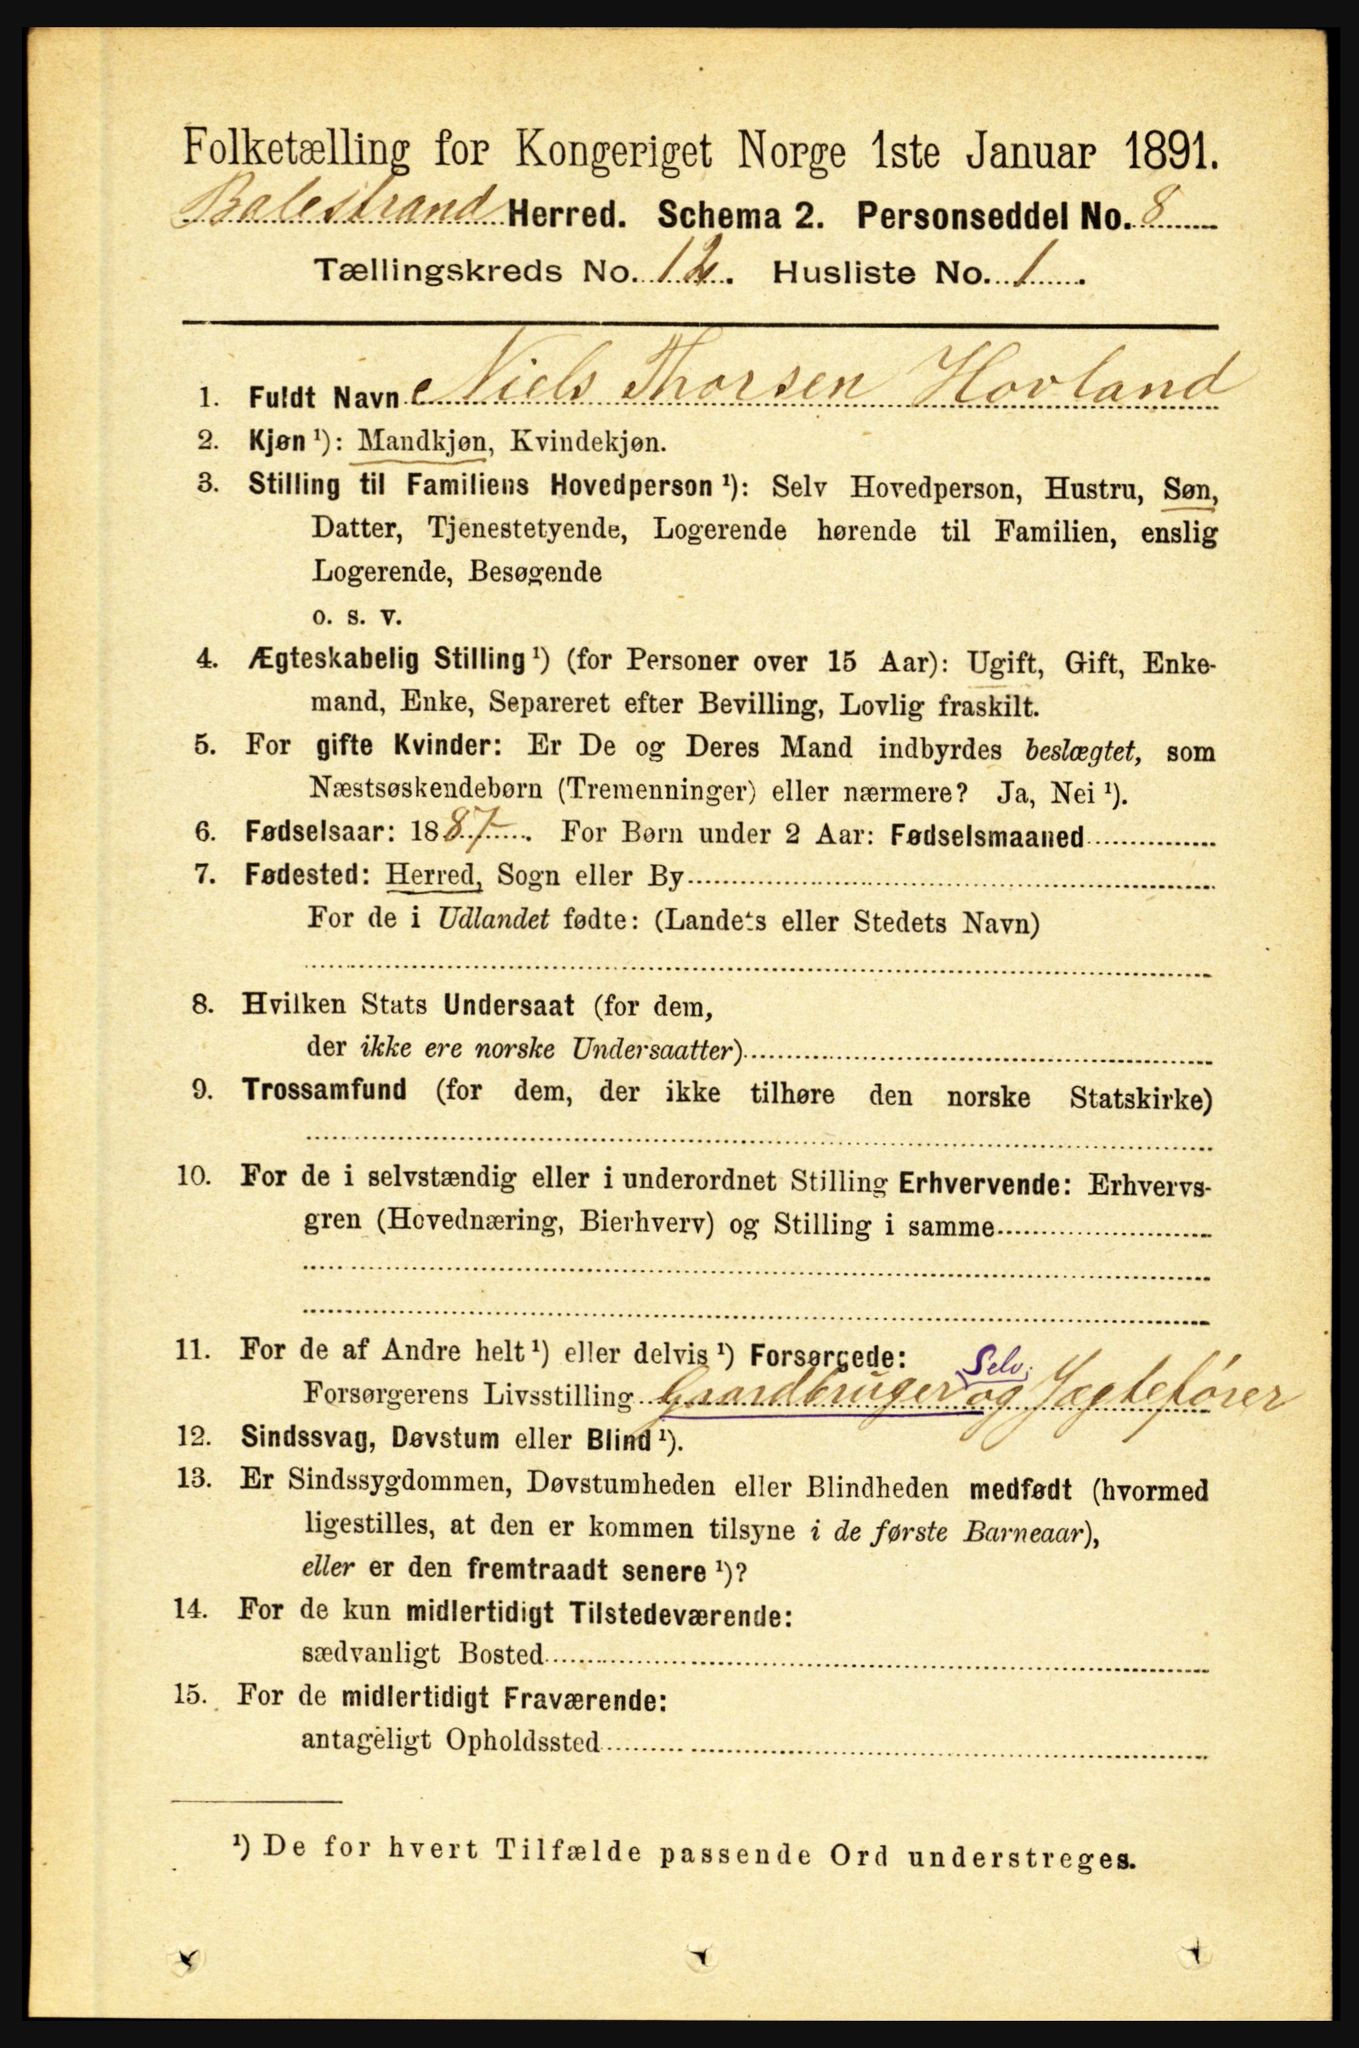 Folketælling for Kongeriget Norge 1ste Januar 1891.
Balestrand Herred. Schema 2. Personseddel No. 8
Tællingskreds No. 12. Husliste No. 1.
1. Fuldt Navn Niels Thorsen Hovland
2. Kjøn ¹): Mandkjøn, Kvindekjøn.
3. Stilling til Familiens Hovedperson ¹): Selv Hovedperson, Hustru, Søn,
Datter, Tjenestetyende, Logerende hørende til Familien, enslig
Logerende, Besøgende
o. s. v.
4. Ægteskabelig Stilling ¹) (for Personer over 15 Aar): Ugift, Gift, Enke-
mand, Enke, Separeret efter Bevilling, Lovlig fraskilt.
5. For gifte Kvinder: Er De og Deres Mand indbyrdes beslægtet, som
Næstsøskendebørn (Tremenninger) eller nærmere? Ja, Nei ¹).
6. Fødselsaar: 1887. For Børn under 2 Aar: Fødselsmaaned
7. Fødested: Herred, Sogn eller By
For de i Udlandet fødte: (Landets eller Stedets Navn)
8. Hvilken Stats Undersaat (for dem,
der ikke ere norske Undersaatter)
9. Trossamfund (for dem, der ikke tilhøre den norske Statskirke)
10. For de i selvstændig eller i underordnet Stilling Erhvervende: Erhvervs-
gren (Hovednæring, Bierhverv) og Stilling i samme
11. For de af Andre helt ¹) eller delvis ¹) Forsørgede:
Selv.
Forsørgerens Livsstilling Gaardbruger og Jagtefører
12. Sindssvag, Døvstum eller Blind ¹).
13. Er Sindssygdommen, Døvstumheden eller Blindheden medfødt (hvormed
ligestilles, at den er kommen tilsyne i de første Barneaar),
eller er den fremtraadt senere ¹)?
14. For de kun midlertidigt Tilstedeværende:
sædvanligt Bosted
15. For de midlertidigt Fraværende:
antageligt Opholdssted
¹) De for hvert Tilfælde passende Ord understreges.